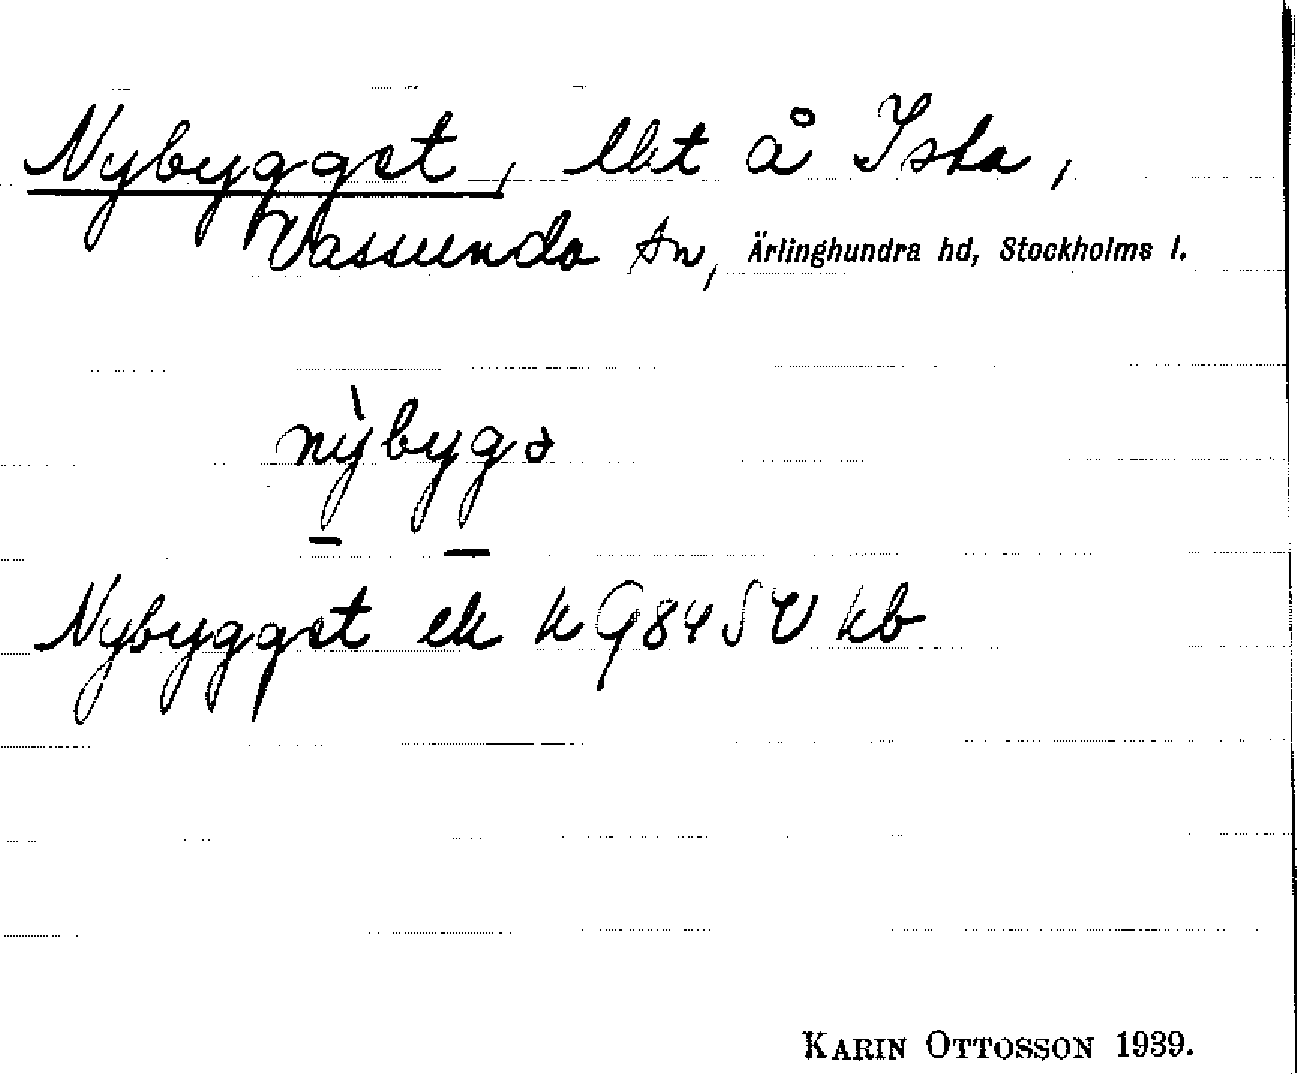 Nybygget, lht å Ista,
Vassunda sn, Ärlinghundra hd, Stockholms l.
nỳbygə
Nybygget ek k 9845V kb
KARIN OTTOSSON 1939.